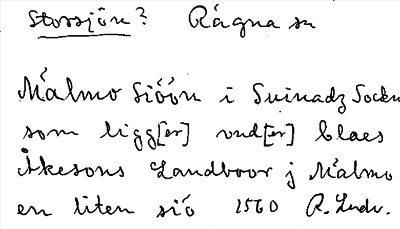 Storsjön? Rägna sn
Målmo Siöön i Suinadz Sockn
som ligg[er] vnd[er] Claes
Åkesons Landboor j Målmo
en liten siö 1560 R. Ludv.